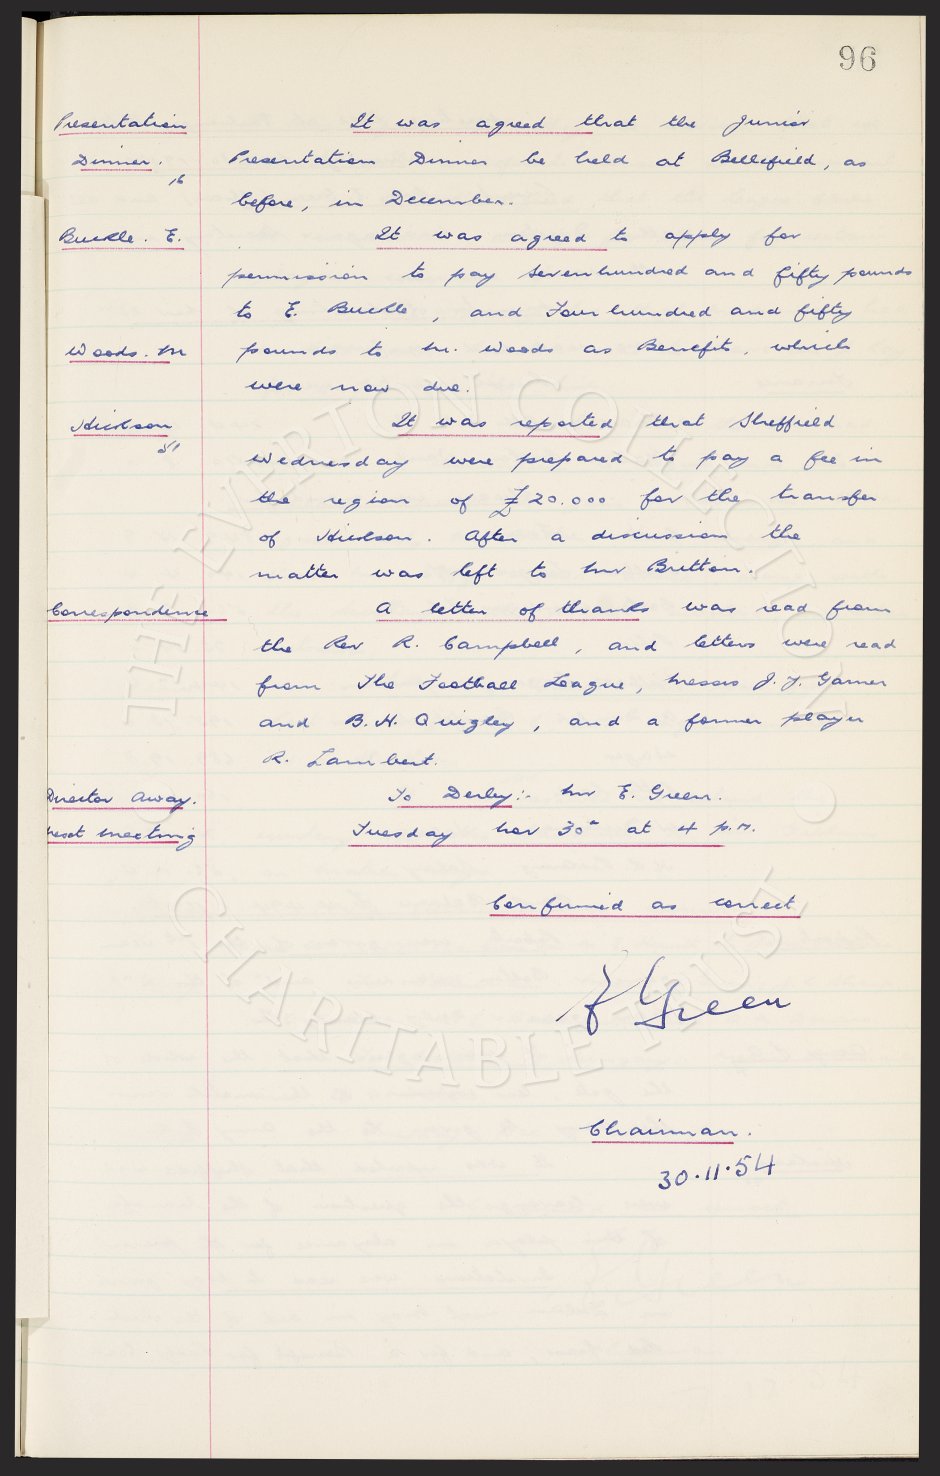 96
Presentation It was agreed that the Junior
Dinner. Presentation Dinner be held at Bellefield, as
16 before, in December.
Buckle. E. It was agreed to apply for
permission to pay sevenhundred and fifty pounds
to E. Buckle, and Four hundred and fifty
Woods. M pounds to M. Woods as Benefits, which
were now due.
Hickson It was reported that Sheffield
51 Wednesday were prepared to pay a fee in
the region of £20.000 for the transfer
of Hickson. After a discussion the
matter was left to Mr Britton.
Correspondence A letter of thanks was read from
the Rev R. Campbell, and letters were read
from The Football League, Messrs J. J. Garner
and B. H. Quigley, and a former player
R. Lambert.
Director Away. To Derby:- Mr E. Green.
Next Meeting Tuesday Nov 30th at 4 p.m.
Confirmed as correct
E Green
Chairman.
30.11.54
THE EVERTON COLLECTION
CHARITABLE TRUST